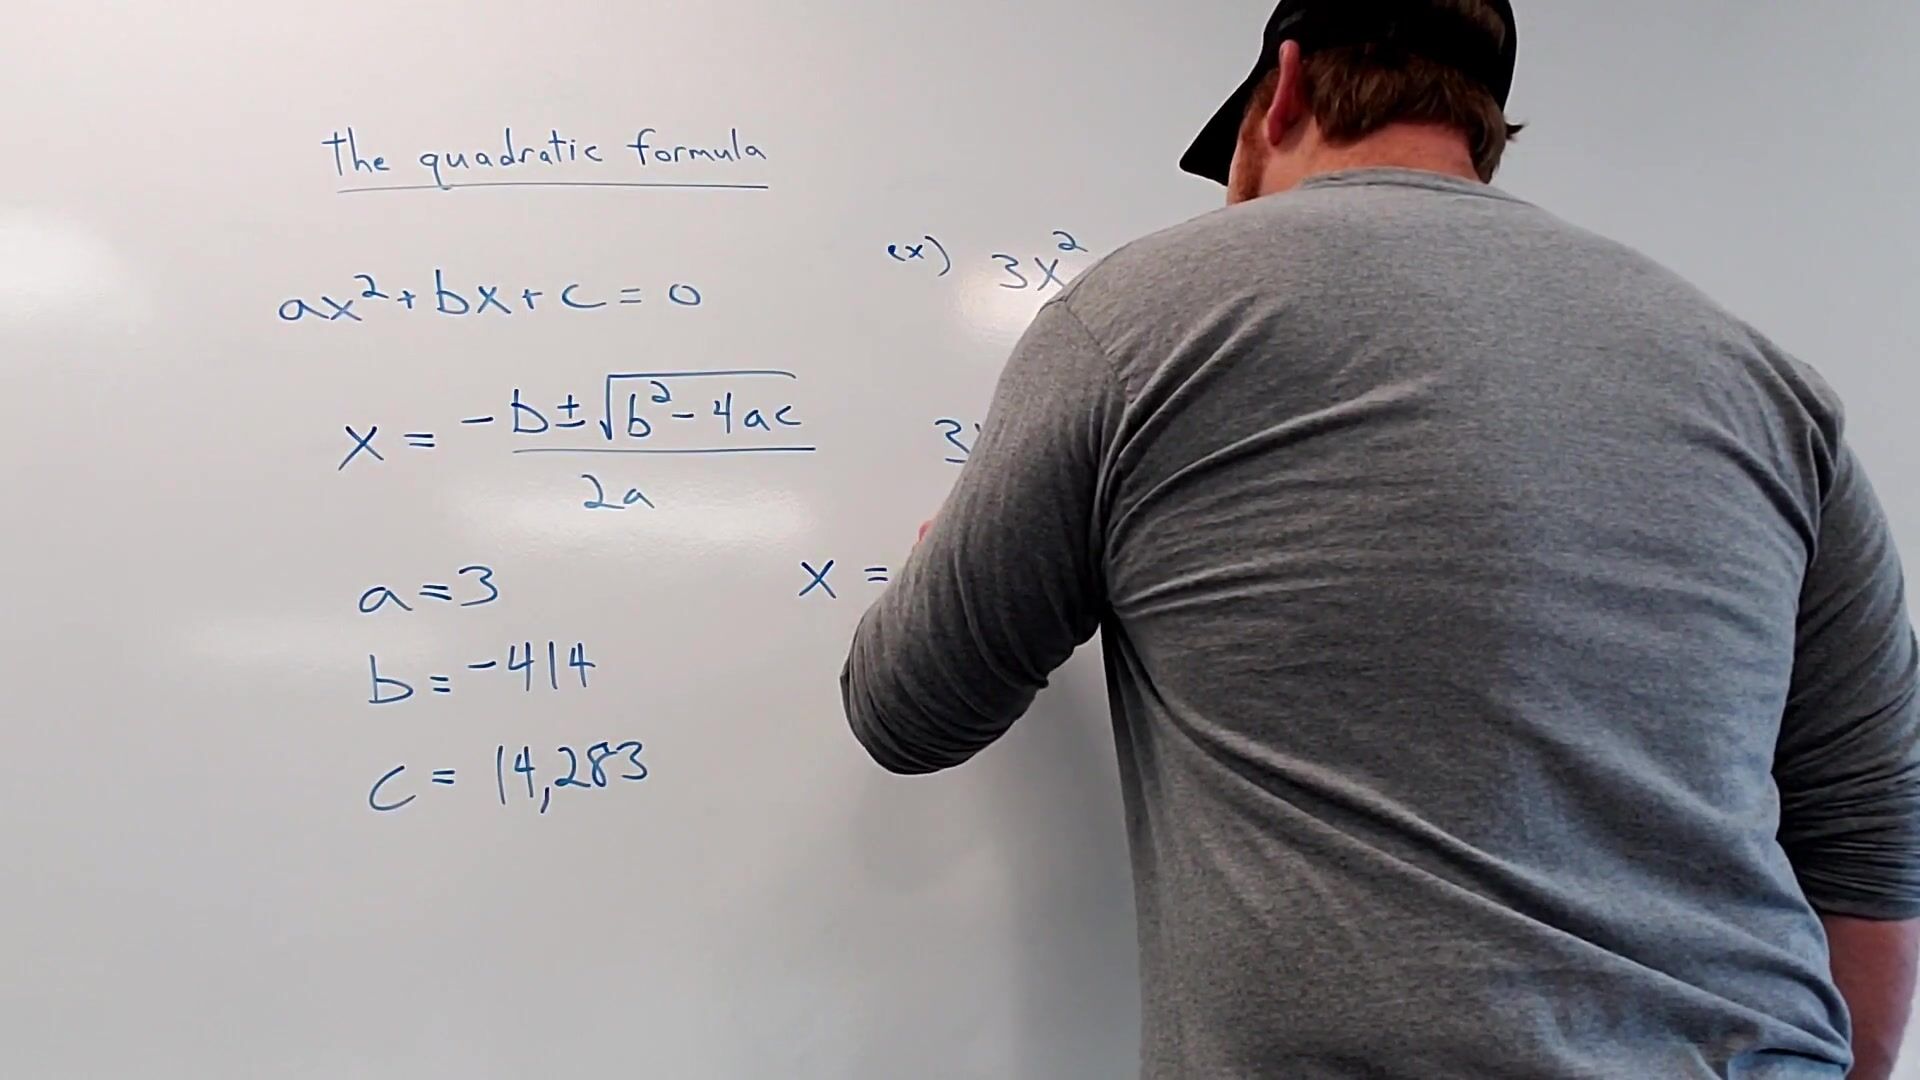 the quadratic formula
ax²+bx+c=0
x = -b±√b²-4ac
2a
a=3
b=-414
c = 14,283
ex) 3x²
3
x =